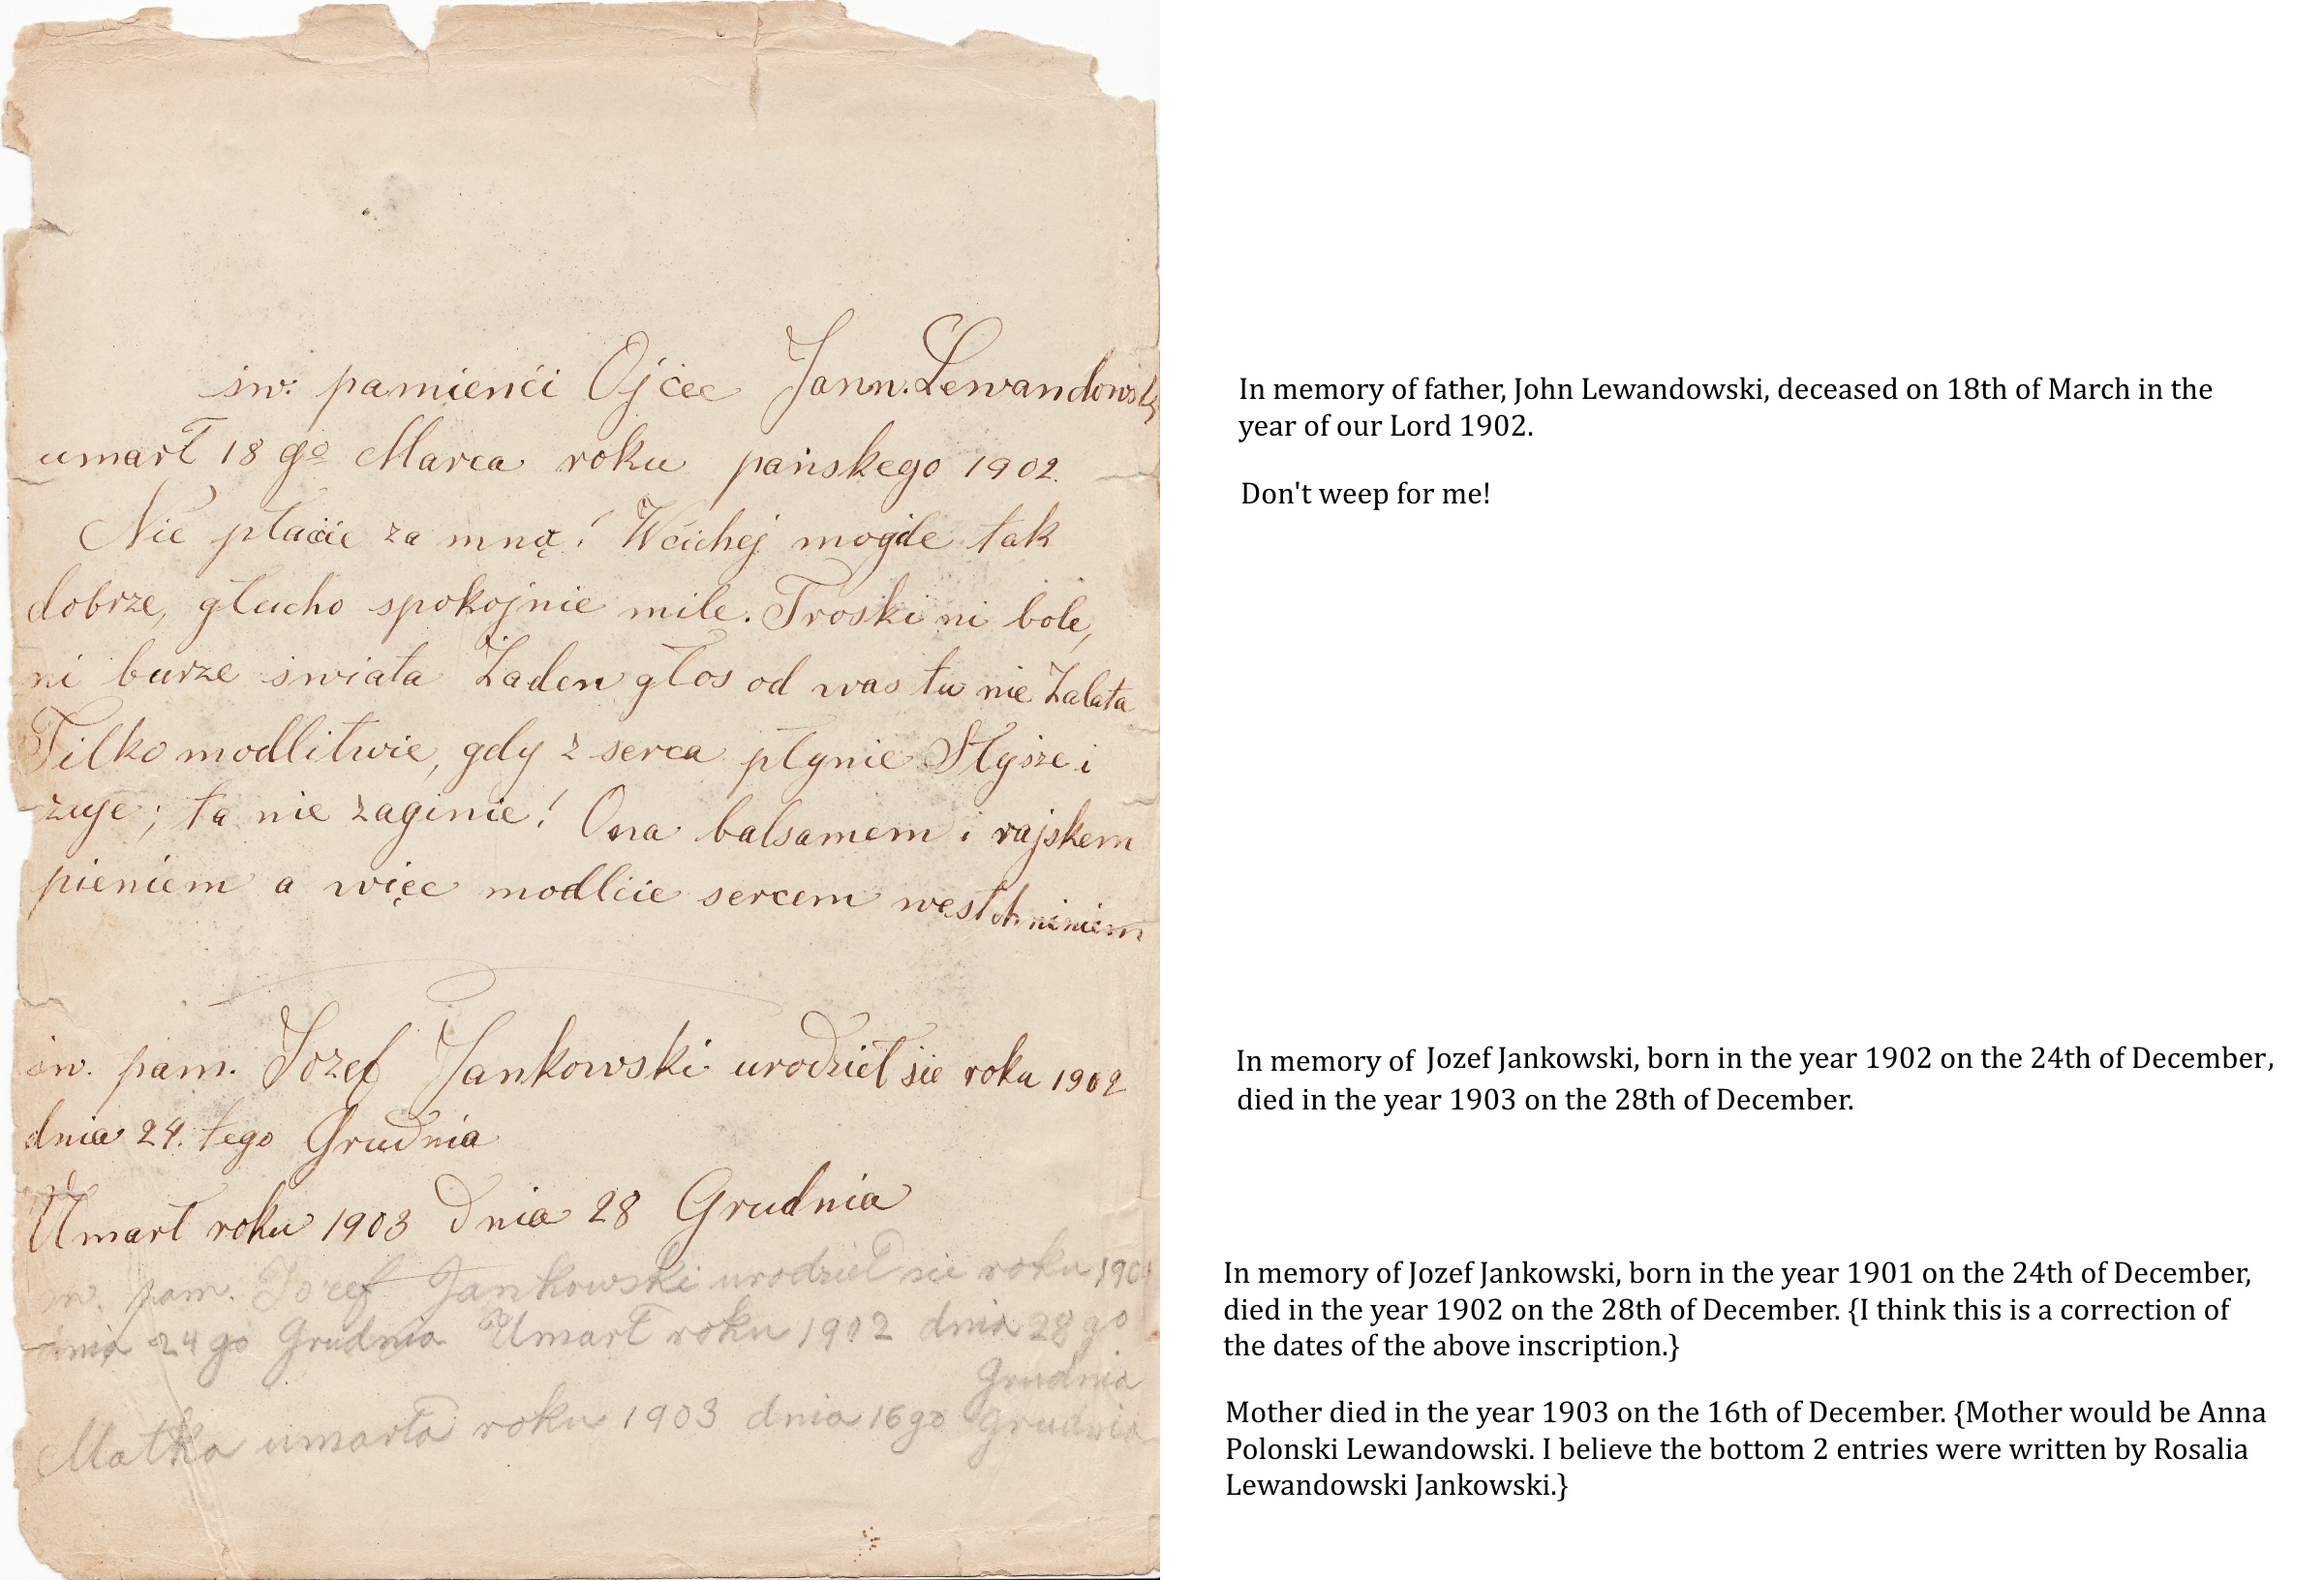 św. pamienći Ojćec Jann. Lewandowski
umarł 18 go Marca roku pańskego 1902.
Nie płaćcie za mną! Wcichej mogile tak
dobrze, głucho spokojnie mile. Troski ni bole,
ni burze świata Żaden głos od was tu nie Zalata
Tilko modlitwie, gdy z serca płynie Słysze i
zuje; ta nie zaginie! Ona balsamem i rajskem
pieniem a więc modlcie sercem westchniniem
św. pam. Jozef Jankowski urodzieł sie roku 1902
dnia 24. tego Grudnia
Umarł roku 1903 dnia 28 Grudnia
pam. Jozef Jankowski urodzieł sie roku 1901
dnia 24 go Grudnia Umarł roku 1902 dnia 28 go
Grudnia
Matka umarła roku 1903 dnia 16 go Grudnia
In memory of father, John Lewandowski, deceased on 18th of March in the
year of our Lord 1902.
Don't weep for me!
In memory of Jozef Jankowski, born in the year 1902 on the 24th of December,
died in the year 1903 on the 28th of December.
In memory of Jozef Jankowski, born in the year 1901 on the 24th of December,
died in the year 1902 on the 28th of December. {I think this is a correction of
the dates of the above inscription.}
Mother died in the year 1903 on the 16th of December. {Mother would be Anna
Polonski Lewandowski. I believe the bottom 2 entries were written by Rosalia
Lewandowski Jankowski.}